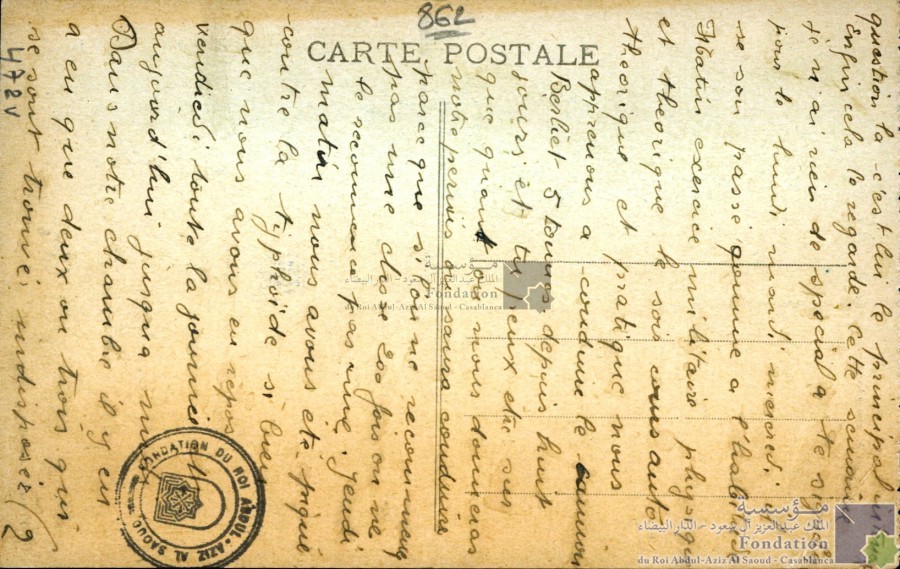 862
CARTE POSTALE
472V
question la c'est lui le principal
Enfin cela le regarde. Cette semaine
je n'ai rien de special a te signaler
pour le lundi mardi mercredi
se son passe comme a l'habi
Matin exercice militaire physique
et theorique le soir cours auto
theorique et pratique nous
apprenons a conduire le camion
Berliet 5 tours depuis huit
jours et tu peux etre sur
que quant on nous donneras
notre permis on saura conduire
parce que si on ne recommence
pas une chose 200 fois on ne
le recommence pas une. Jeudi
matin nous avons eté piqué
contre la typhoïde si bien
que nous avons eu repos
vendredi toute la journee
aujourd'hui jusqua
Dans notre chambre il y en
a eu que deux ou trois qui
se sont trouvé indisposés (2
FONDATION DU ROI ABDUL-AZIZ AL SAOUD
مؤسسة
الملك عبد العزيز آل سعود - الدار البيضاء
Fondation
du Roi Abdul-Aziz Al Saoud - Casablanca
مؤسسة
الملك عبد العزيز آل سعود - الدار البيضاء
Fondation
du Roi Abdul-Aziz Al Saoud - Casablanca